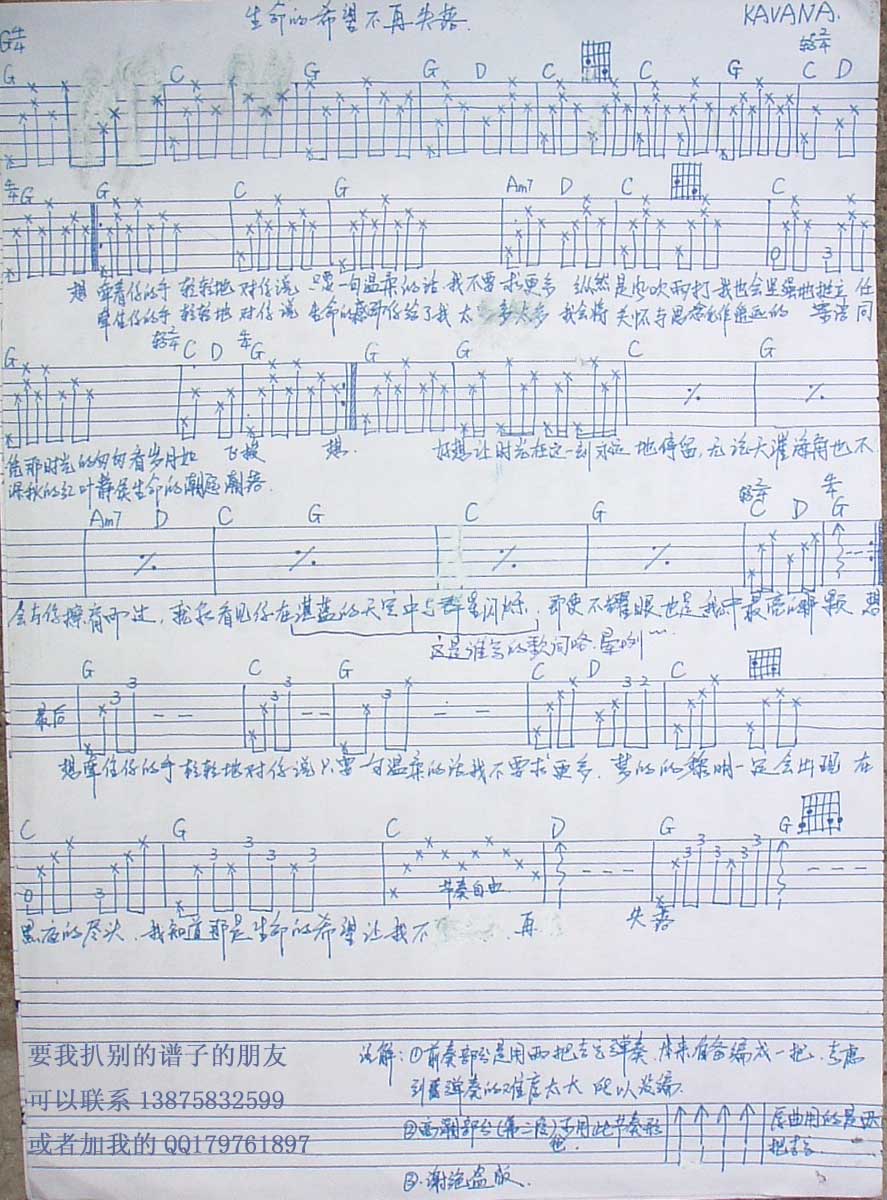 生命的希望不再失落
KAVANA.
G 4/4
转 2/4
G C G G D C C G C D
4/4 G G C G Am7 D C C
想 牵着你的手 轻轻地 对你说 只要一句温柔的话 我不要求更多 纵然是风吹雨打 我也会坚强地挺立 任
牵住你的手 轻轻地 对你说 生命的 你给了我太多太多 我会将关怀与思念 遥远的 同
转 2/4 4/4
G C D G G G C G
凭那时光的匆匆看岁月如 飞梭 想
深秋的红叶静候生命的潮起潮落
好想让时光在这一刻永远地停留,无论天涯海角也不
转 2/4 4/4
Am7 D C G C G C D G
会与你擦肩而过, 我能看见你在湛蓝的天空中与群星闪烁, 即使不耀眼也是我心中最亮的那颗 想
这是谁写的歌词咯,晕咧~~~
G C G C D C
最后
3 3 3 3 3 3 2
想牵住你的手轻轻地对你说只要一句温柔的话我不要求更多, 梦的的黎明一定会出现 在
C G C D G G
0 3 3 3 3 3 3 3
节奏自由
黑夜的尽头, 我知道那是生命的希望让我不 再 失落
说解: ①前奏部分是用两把吉它弹奏, 本来准备编成一把, 考虑
到弹奏的难度太大 所以没编.
②高潮部分(第二段)可用此节奏形
原曲用的是两
把吉它
③谢绝盗版.
要我扒别的谱子的朋友
可以联系 13875832599
或者加我的 QQ179761897